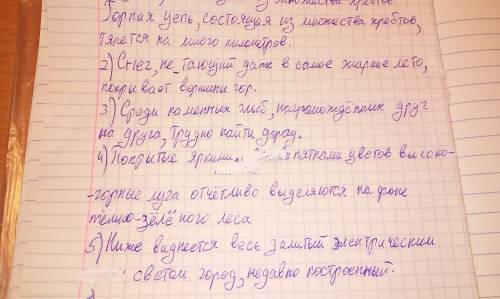 множества хребтов
Горная цепь, состоящая из множества хребтов,
тянется на много километров.
2) Снег, не_тающий даже в самое жаркое лето,
покрывает вершины гор.
3) Среди каменных глыб, нагромождённых друг
на друга, трудно найти дорогу.
4) Покрытые яркими пятнами цветов высоко-
-горные луга отчётливо выделяются на фоне
тёмно-зелёного леса
5) Ниже виднеется весь залитый электрическим
светом город, недавно построенный.